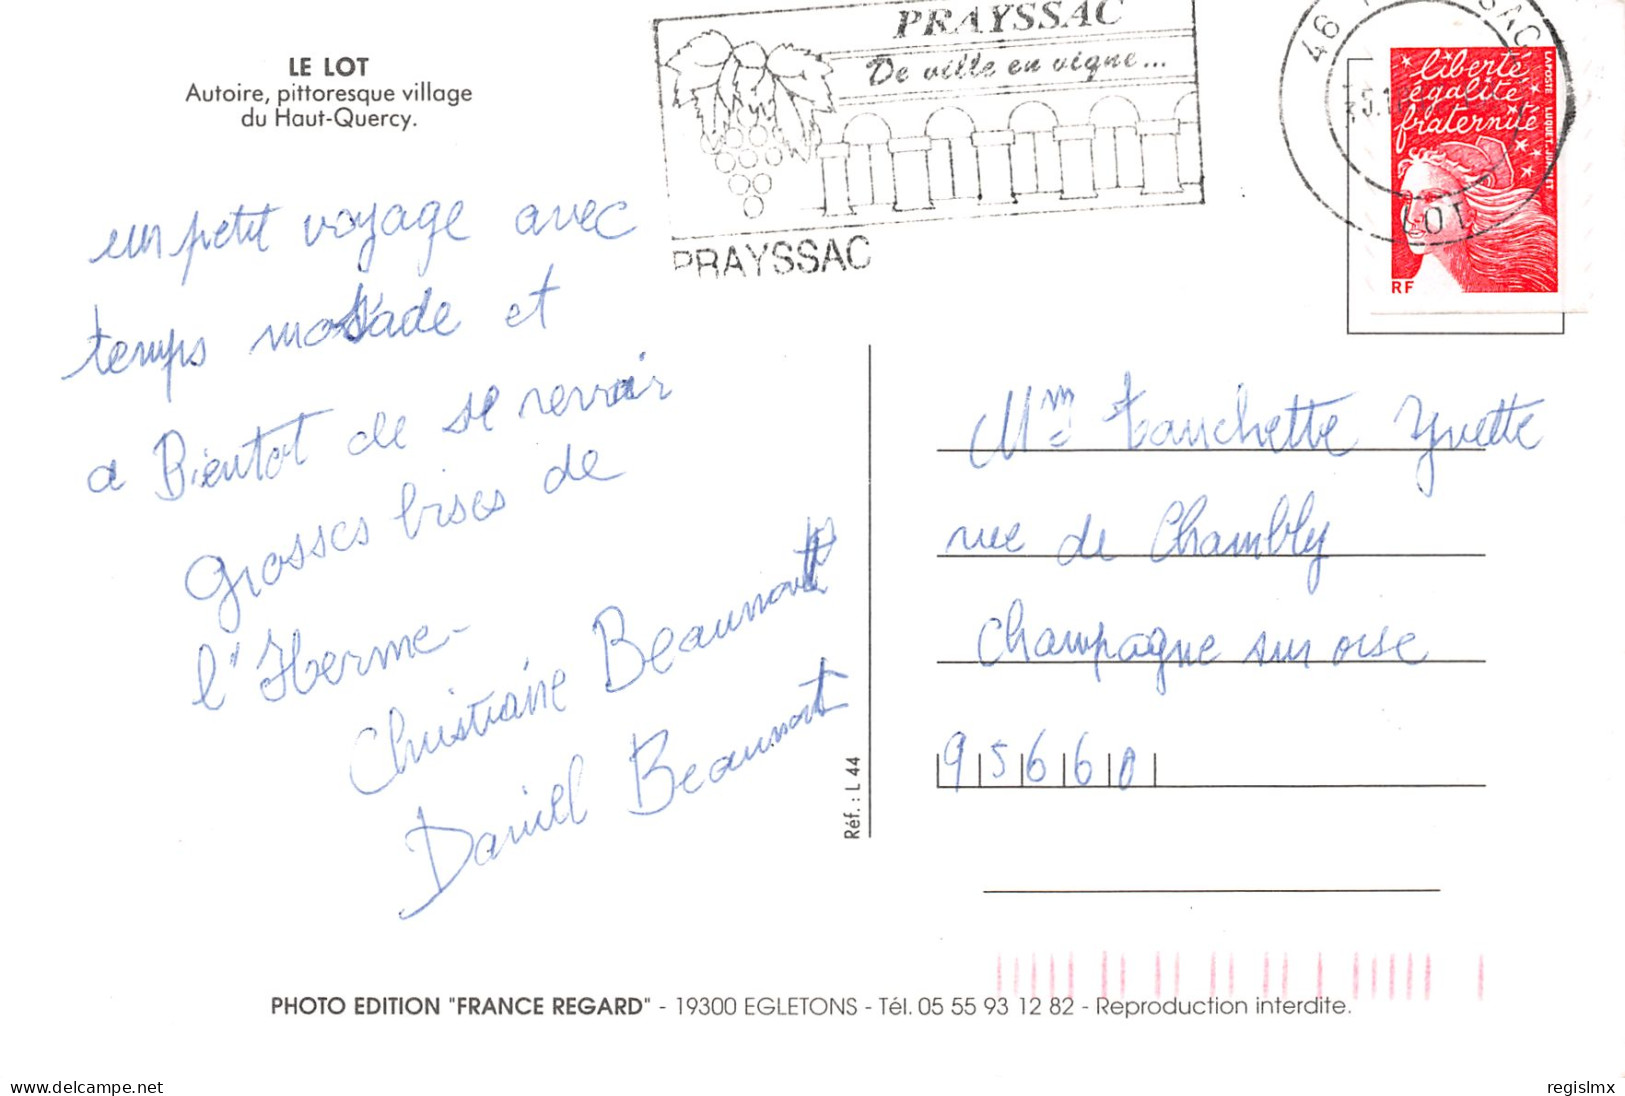 LE LOT
Autoire, pittoresque village
du Haut-Quercy.
PRAYSSAC
De ville en vigne...
PRAYSSAC
46
LOT
liberté
égalité
fraternité
LAPOSTE LUQUET-JUMELET
RF
un petit voyage avec
temps mossade et
a Bientot de se revoir
Grosses bises de
l'Herme-
Christiane Beaumont
Daniel Beaumont
Mme Fanchette Yvette
rue de Chambly
Champagne sur oise
95660
Réf. : L 44
PHOTO EDITION "FRANCE REGARD" - 19300 EGLETONS - Tél. 05 55 93 12 82 - Reproduction interdite.
delcampe.net
regislmx